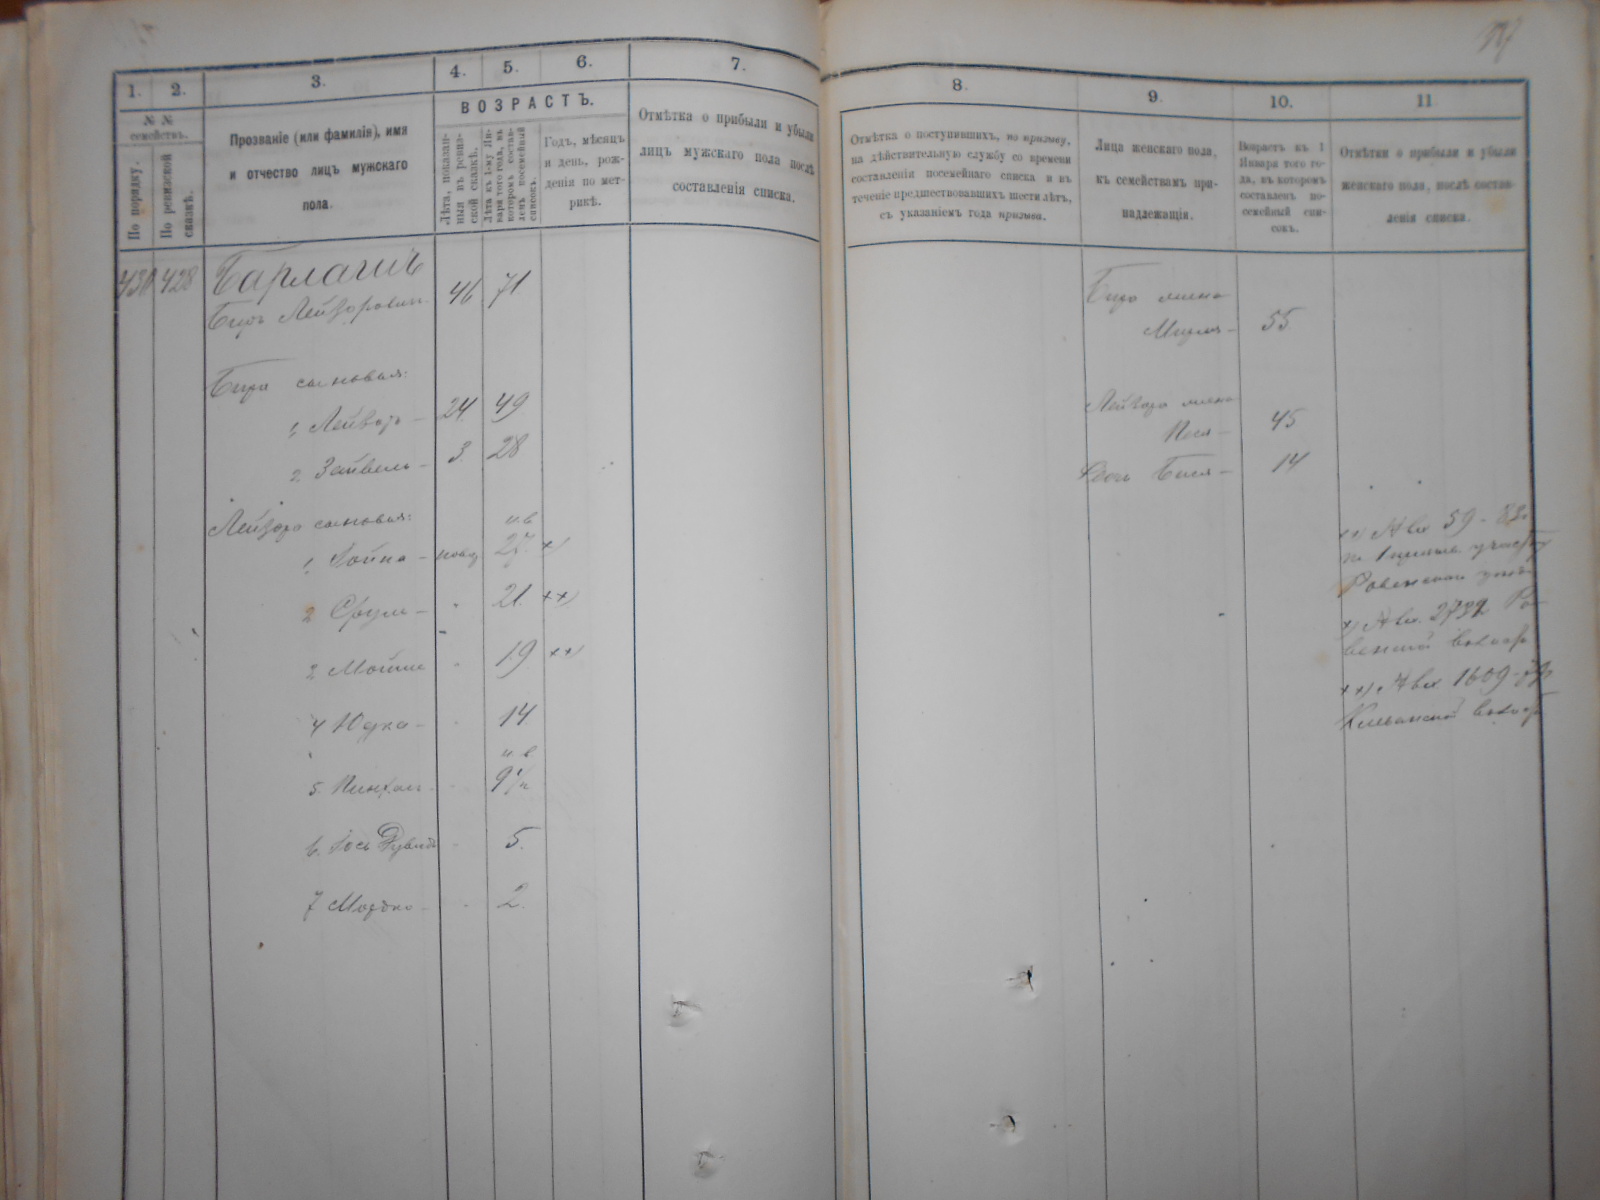 1.
2.
3.
4.
5.
6.
7.
№ №
семействъ.
По порядку.
По ревизской
сказкѣ.
Прозваніе (или фамилія), имя
и отчество лицъ мужскаго
пола.
ВОЗРАСТЪ.
Лѣта, показан-
ныя въ ревиз-
ской сказкѣ.
Лѣта къ 1-ому Ян-
варя того года, въ
которомъ состав-
ленъ посемейный
списокъ.
Годъ, мѣсяцъ
и день, рож-
денія по мет-
рикѣ.
Отмѣтка о прибыли и убыли
лицъ мужскаго пола послѣ
составленія списка.
430 428 Барлашъ
Беръ Лейзоровичъ 46 71
Бера сыновья:
1. Лейзоръ 24 49
2 Зейвель 3 28
Лейзора сыновья:
н.в
1. 27 ×)
2 Сруль 21 ××)
Мошко 19 ××)
4 Юдка 14
н.в
5 Пинхас 9½
6. Іось Дувидъ 5.
7 Мордко 2.
8.
9.
10.
11
Отмѣтка о поступившихъ, по призыву,
на дѣйствительную службу со времени
составленія посемейнаго списка и въ
теченіе предшествовавшихъ шести лѣтъ,
съ указаніемъ года призыва.
Лица женскаго пола,
къ семействамъ при-
надлежащія.
Возрастъ къ 1
Января того го-
да, въ которомъ
составленъ по-
семейный спи-
сокъ.
Отмѣтки о прибыли и убыли
женскаго пола, послѣ состав-
ленія списка.
Бера жена
55
Лейзора жена
Песя 45
дочь Бася 14
№ вх 59
Ровенскаго
×) № вх. 2732 Ро-
венской
××) № вх 1609